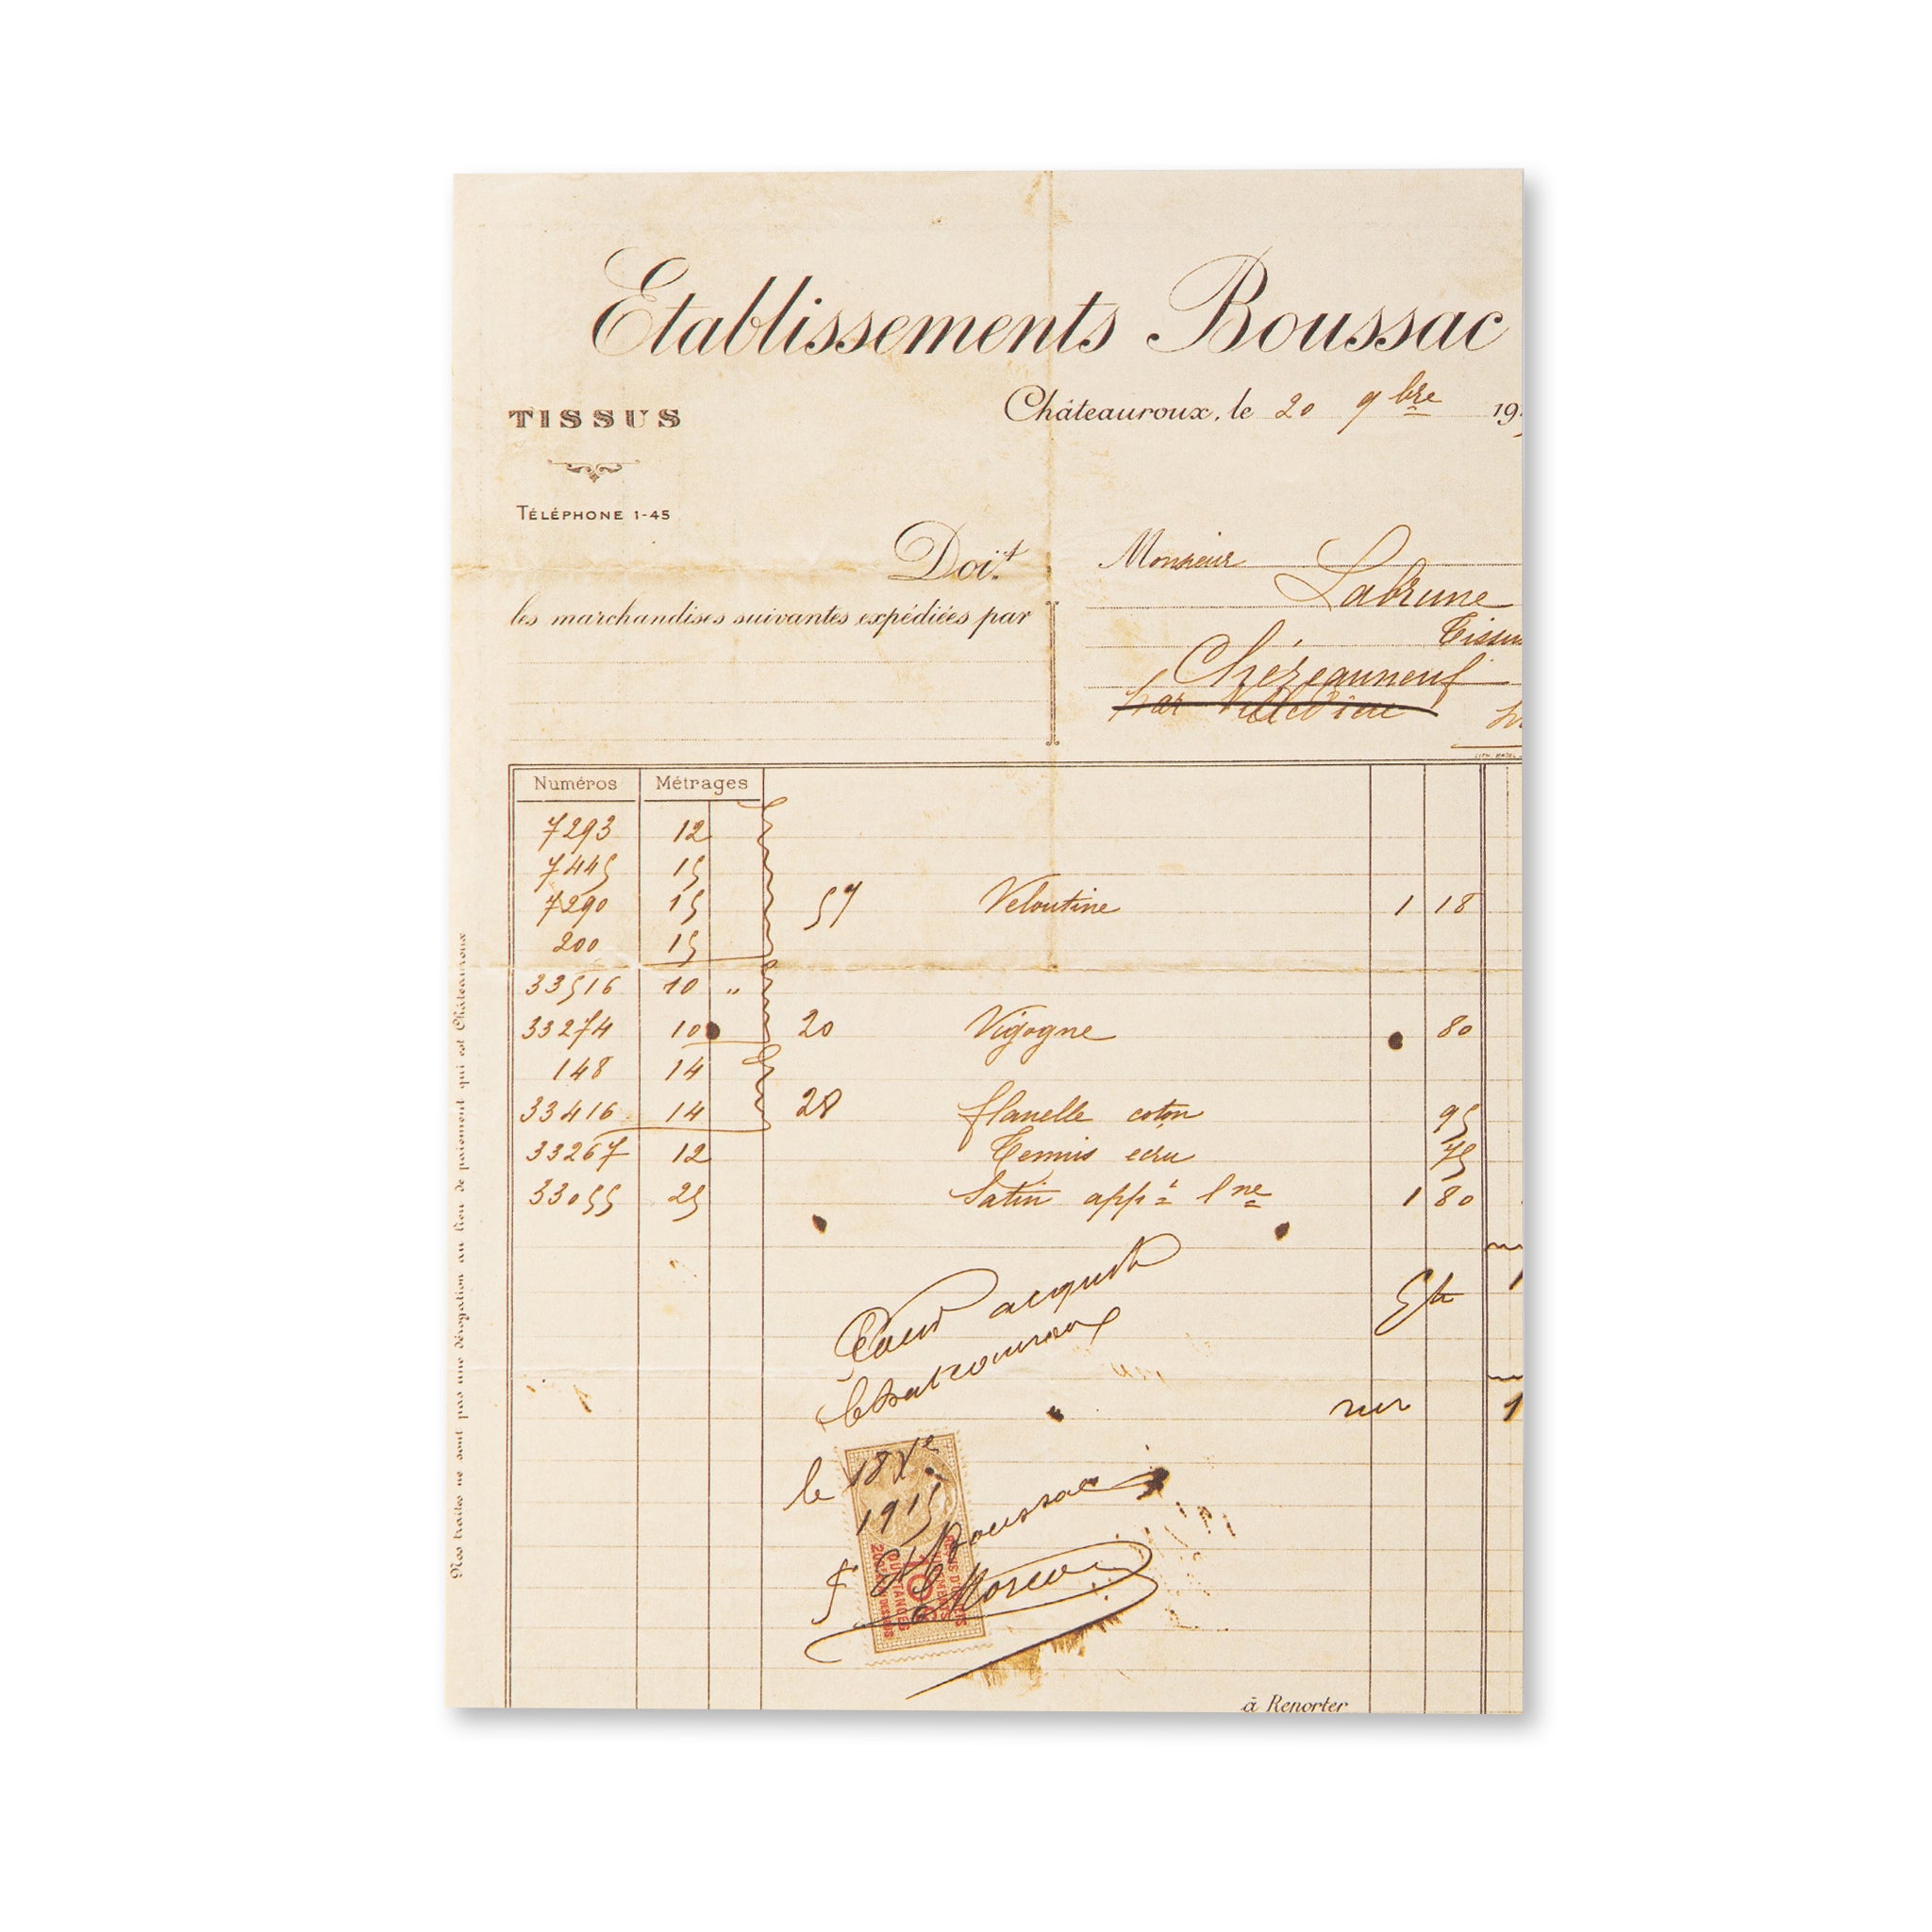 Etablissements Boussac
TISSUS
Châteauroux, le 20 9bre 19
TÉLÉPHONE 1-45
Doit
Monsieur
Labrune
les marchandises suivantes expédiées par
Tissus
Chézeauneuf
par
Numéros Métrages
7293 12
7445 15
7290 15 57 Veloutine 1 18
200 15
33516 10 "
33274 10 20 Vigogne 80
148 14
33416 14 28 flanelle coton 95
33267 12 Tennis écru 75
33055 25 Satin appé lne 1 80
Pour acquit
Chateauroux
le 18 Xe
1915
Boussac
à Reporter
Nos traites ne sont pas une dérogation au lieu de paiement qui est Châteauroux